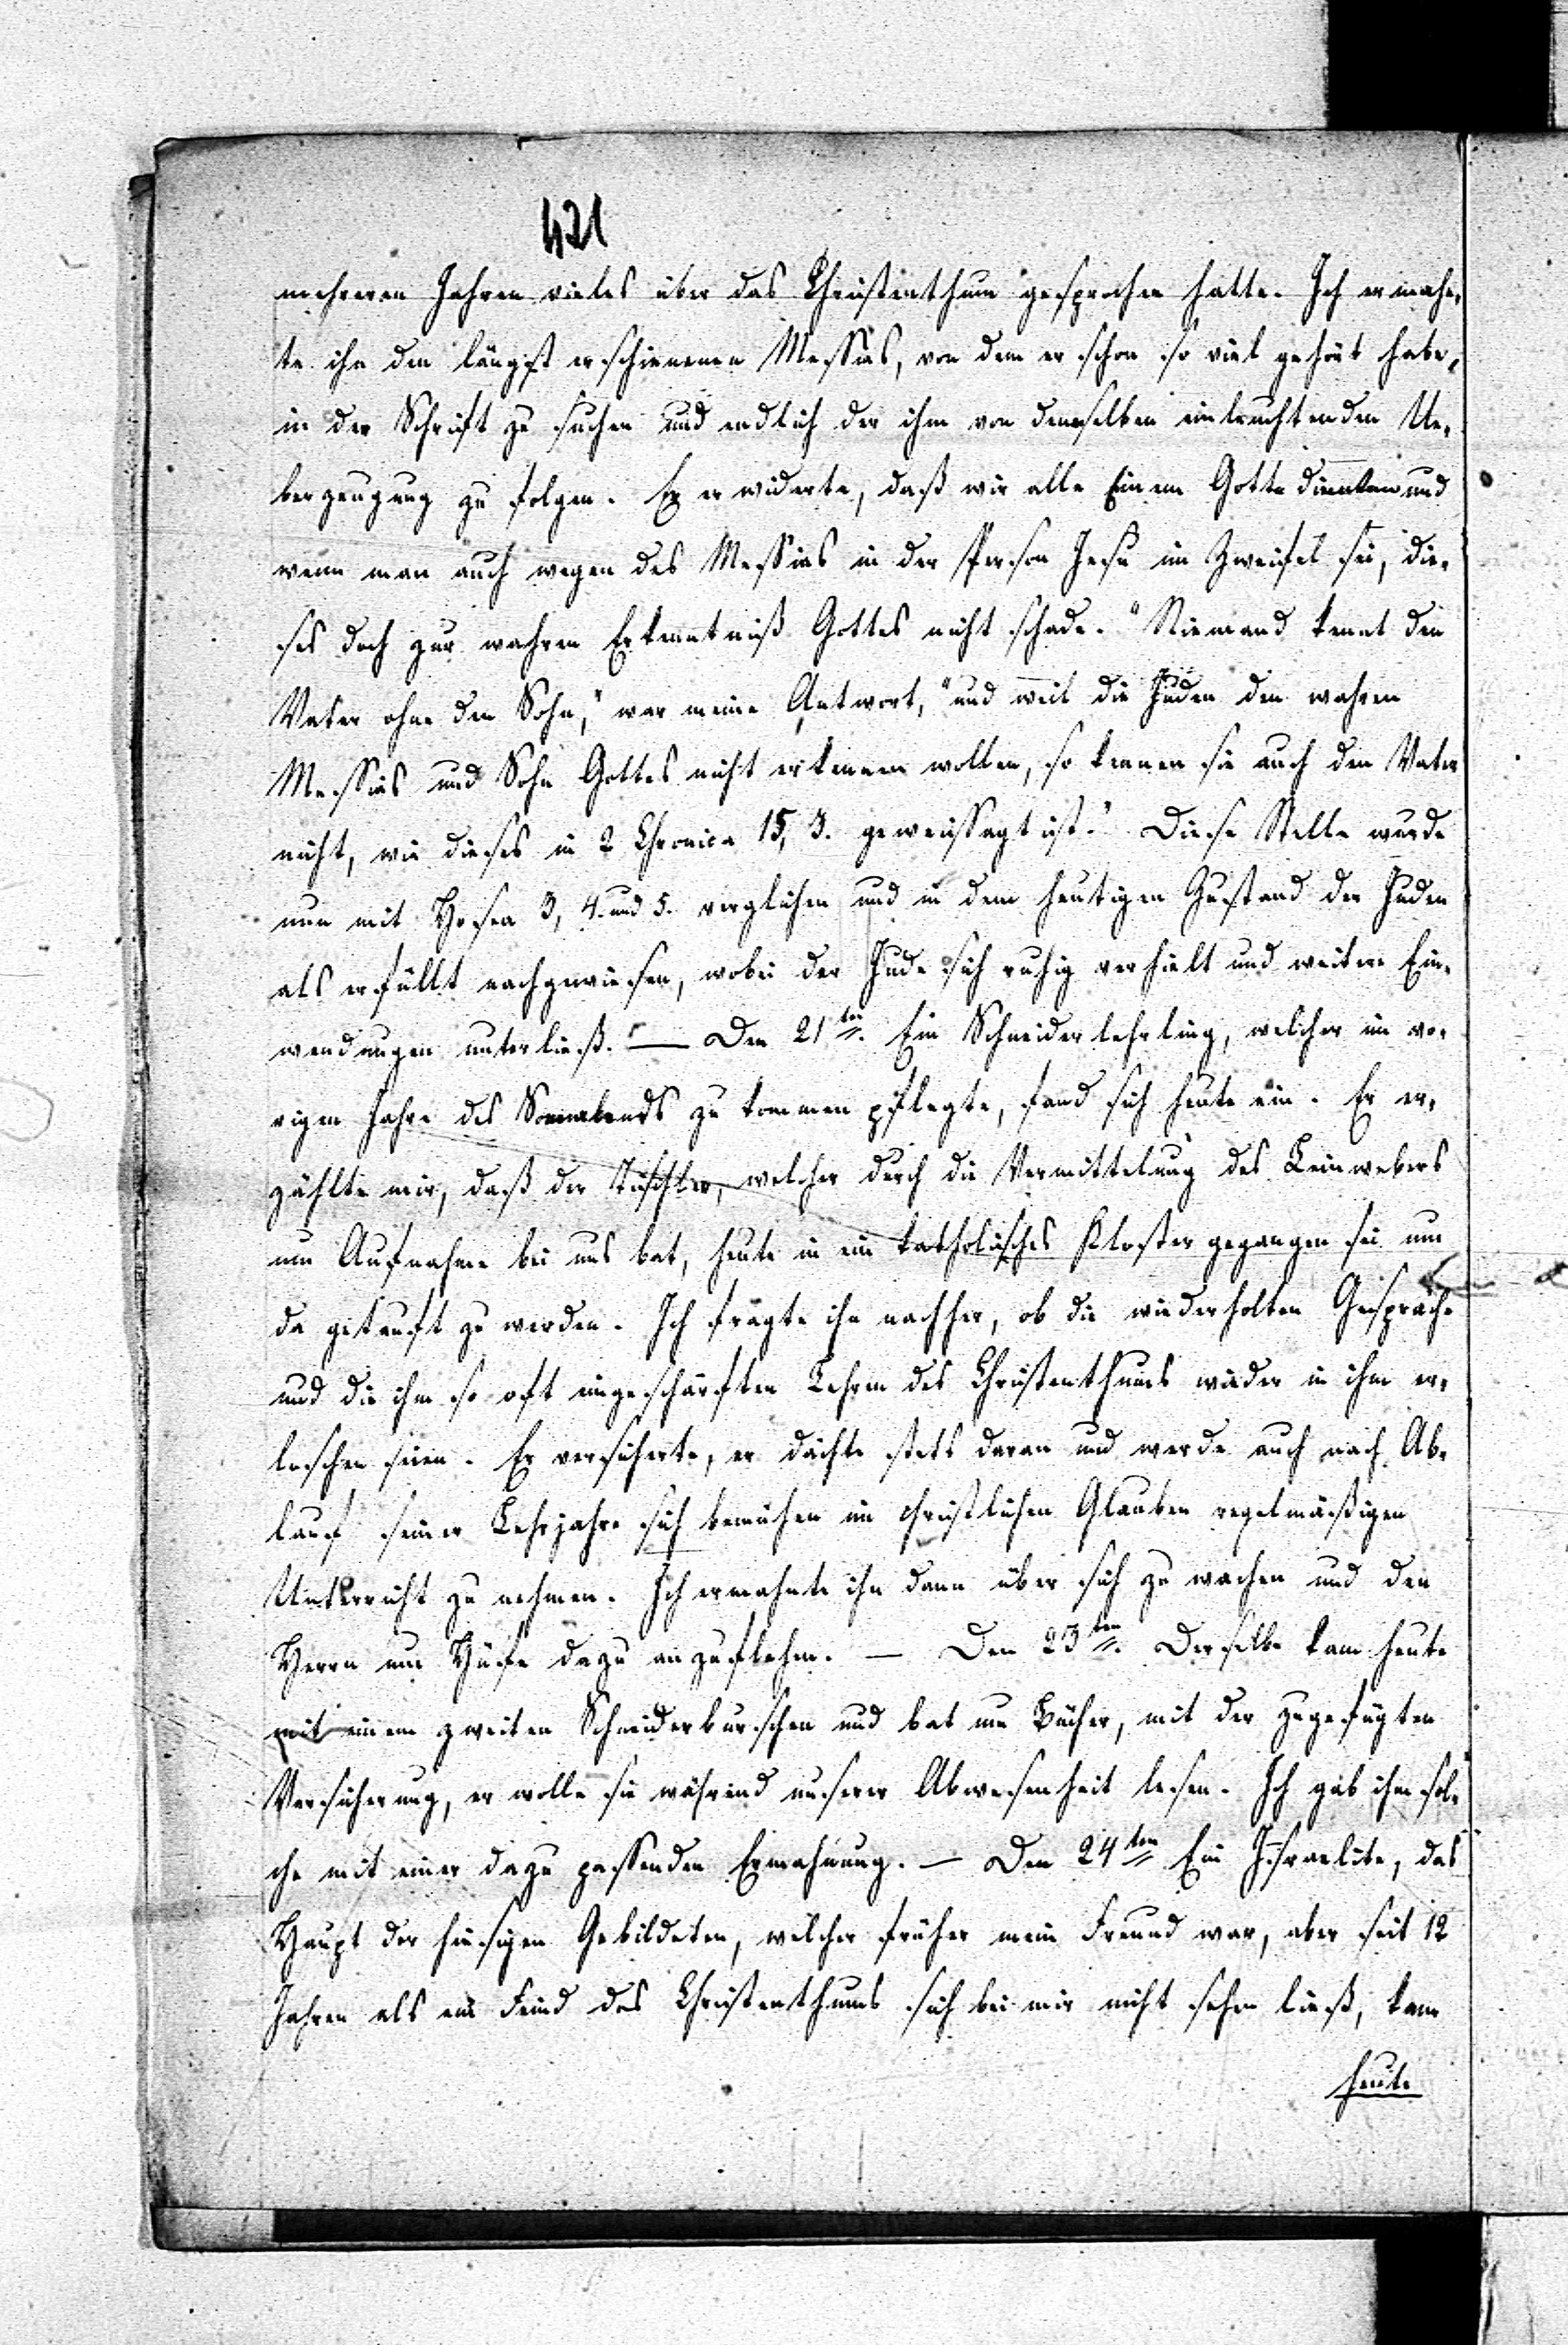 421
mehreren Jahren vieles über das Christenthum gesprochen hatte. Ich ermahn-
te ihn den längst erschienenen Messias, von dem er schon so viel gehört habe,
in der Schrift zu suchen und endlich der ihm von demselben einleuchtenden Ue-
berzeugung zu folgen. Er erwiderte, daß wir alle Einem Gotte dienten und
wenn man auch wegen des Messias in der Person Jesu im Zweifel sei, die-
ses doch zur wahren Erkenntniß Gottes nicht schade. "Niemand kennt den
Vater ohne den Sohn," war meine Antwort, "und weil die Juden den wahren
Messias und Sohn Gottes nicht erkennen wollen, so kennen sie auch den Vater
nicht, wie dieses in 2 Chronica 15, 3. geweissagt ist." Diese Stelle wurde
nun mit Hosea 3, 4. und 5. verglichen und in dem heutigen Zustand der Juden
als erfüllt nachgewiesen, wobei der Jude sich ruhig verhielt und weitere Ein-
wendungen unterließ. — Den 21ten. Ein Schneiderlehrling, welcher im vo-
rigen Jahre des Sonnabends zu kommen pflegte, fand sich heute ein. Er er-
zählte mir, daß der Tischler, welcher durch die Vermittelung des Leinwebers
um Aufnahme bei uns bat, heute in ein katholisches Kloster gegangen sei um
da getauft zu werden. Ich fragte ihn nachher, ob die wiederholten Gespräche
und die ihm so oft eingeschärften Lehren des Christenthums wieder in ihm er-
loschen seien. Er versicherte, er dächte stets daran und werde auch nach Ab-
lauf seiner Lehrjahre sich bemühen im christlichen Glauben regelmäßigen
Unterricht zu nehmen. Ich ermahnte ihn dann über sich zu wachen und den
Herrn um Hülfe dazu anzuflehen. — Den 23ten. Derselbe kam heute
mit einem zweiten Schneiderburschen und bat um Bücher, mit der zugefügten
Versicherung, er wolle sie während unserer Abwesenheit lesen. Ich gab ihm sol-
che mit einer dazu passenden Ermahnung. — Den 24ten Ein Israelite, das
Haupt der hiesigen Gebildeten, welcher früher mein Freund war, aber seit 12
Jahren als ein Feind des Christenthums sich bei mir nicht sehen ließ, kam
heute